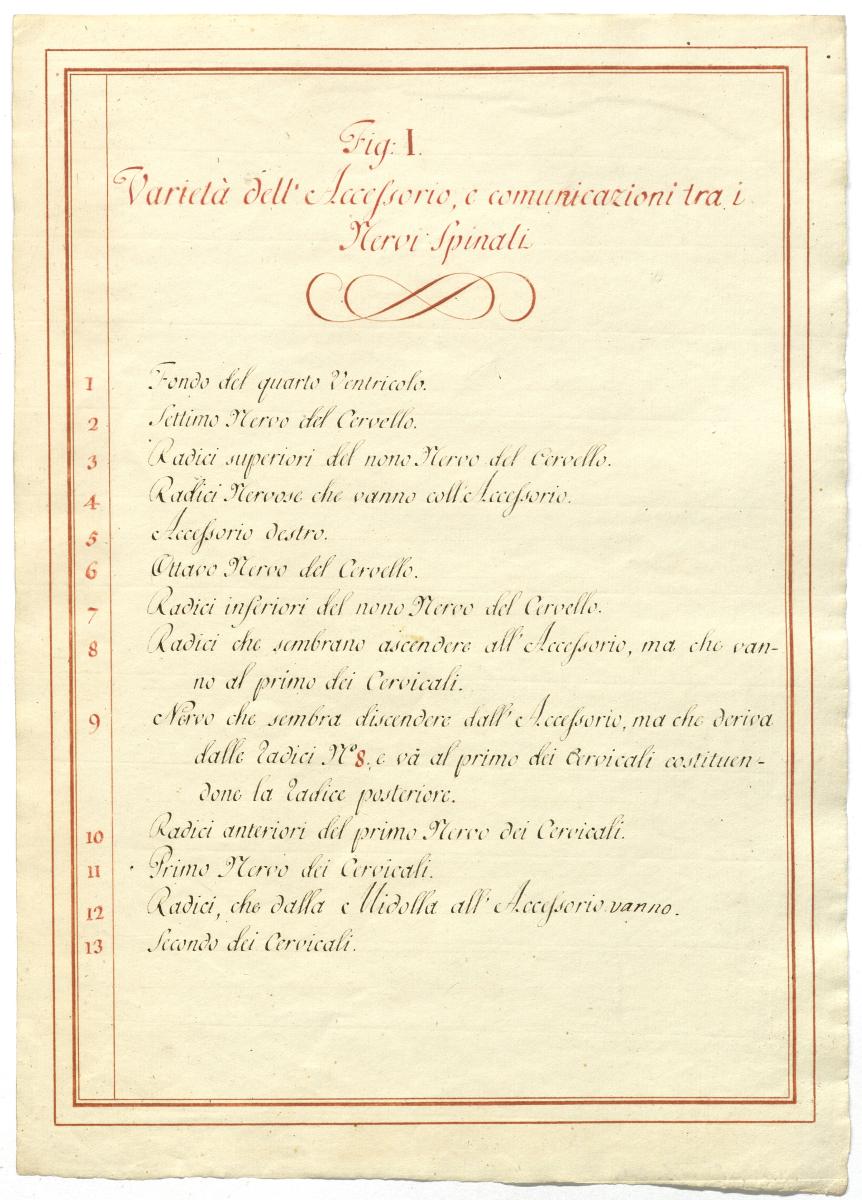 Fig: I.
Varietà dell' Accessorio, e comunicazioni tra i
Nervi Spinali
1 Fondo del quarto Ventricolo.
2 Settimo Nervo del Cervello.
3 Radici superiori del nono Nervo del Cervello.
4 Radici Nervose che vanno coll'Accessorio.
5 Accessorio destro.
6 Ottavo Nervo del Cervello.
7 Radici inferiori del nono Nervo del Cervello.
8 Radici che sembrano ascendere all'Accessorio, ma che van-
no al primo dei Cervicali.
9 Nervo che sembra discendere dall'Accessorio, ma che deriva
dalle radici N.º 8. e và al primo dei Cervicali costituen-
done la radice posteriore.
10 Radici anteriori del primo Nervo dei Cervicali.
11 Primo Nervo dei Cervicali.
12 Radici, che dalla Midolla all'Accessorio vanno.
13 Secondo dei Cervicali.